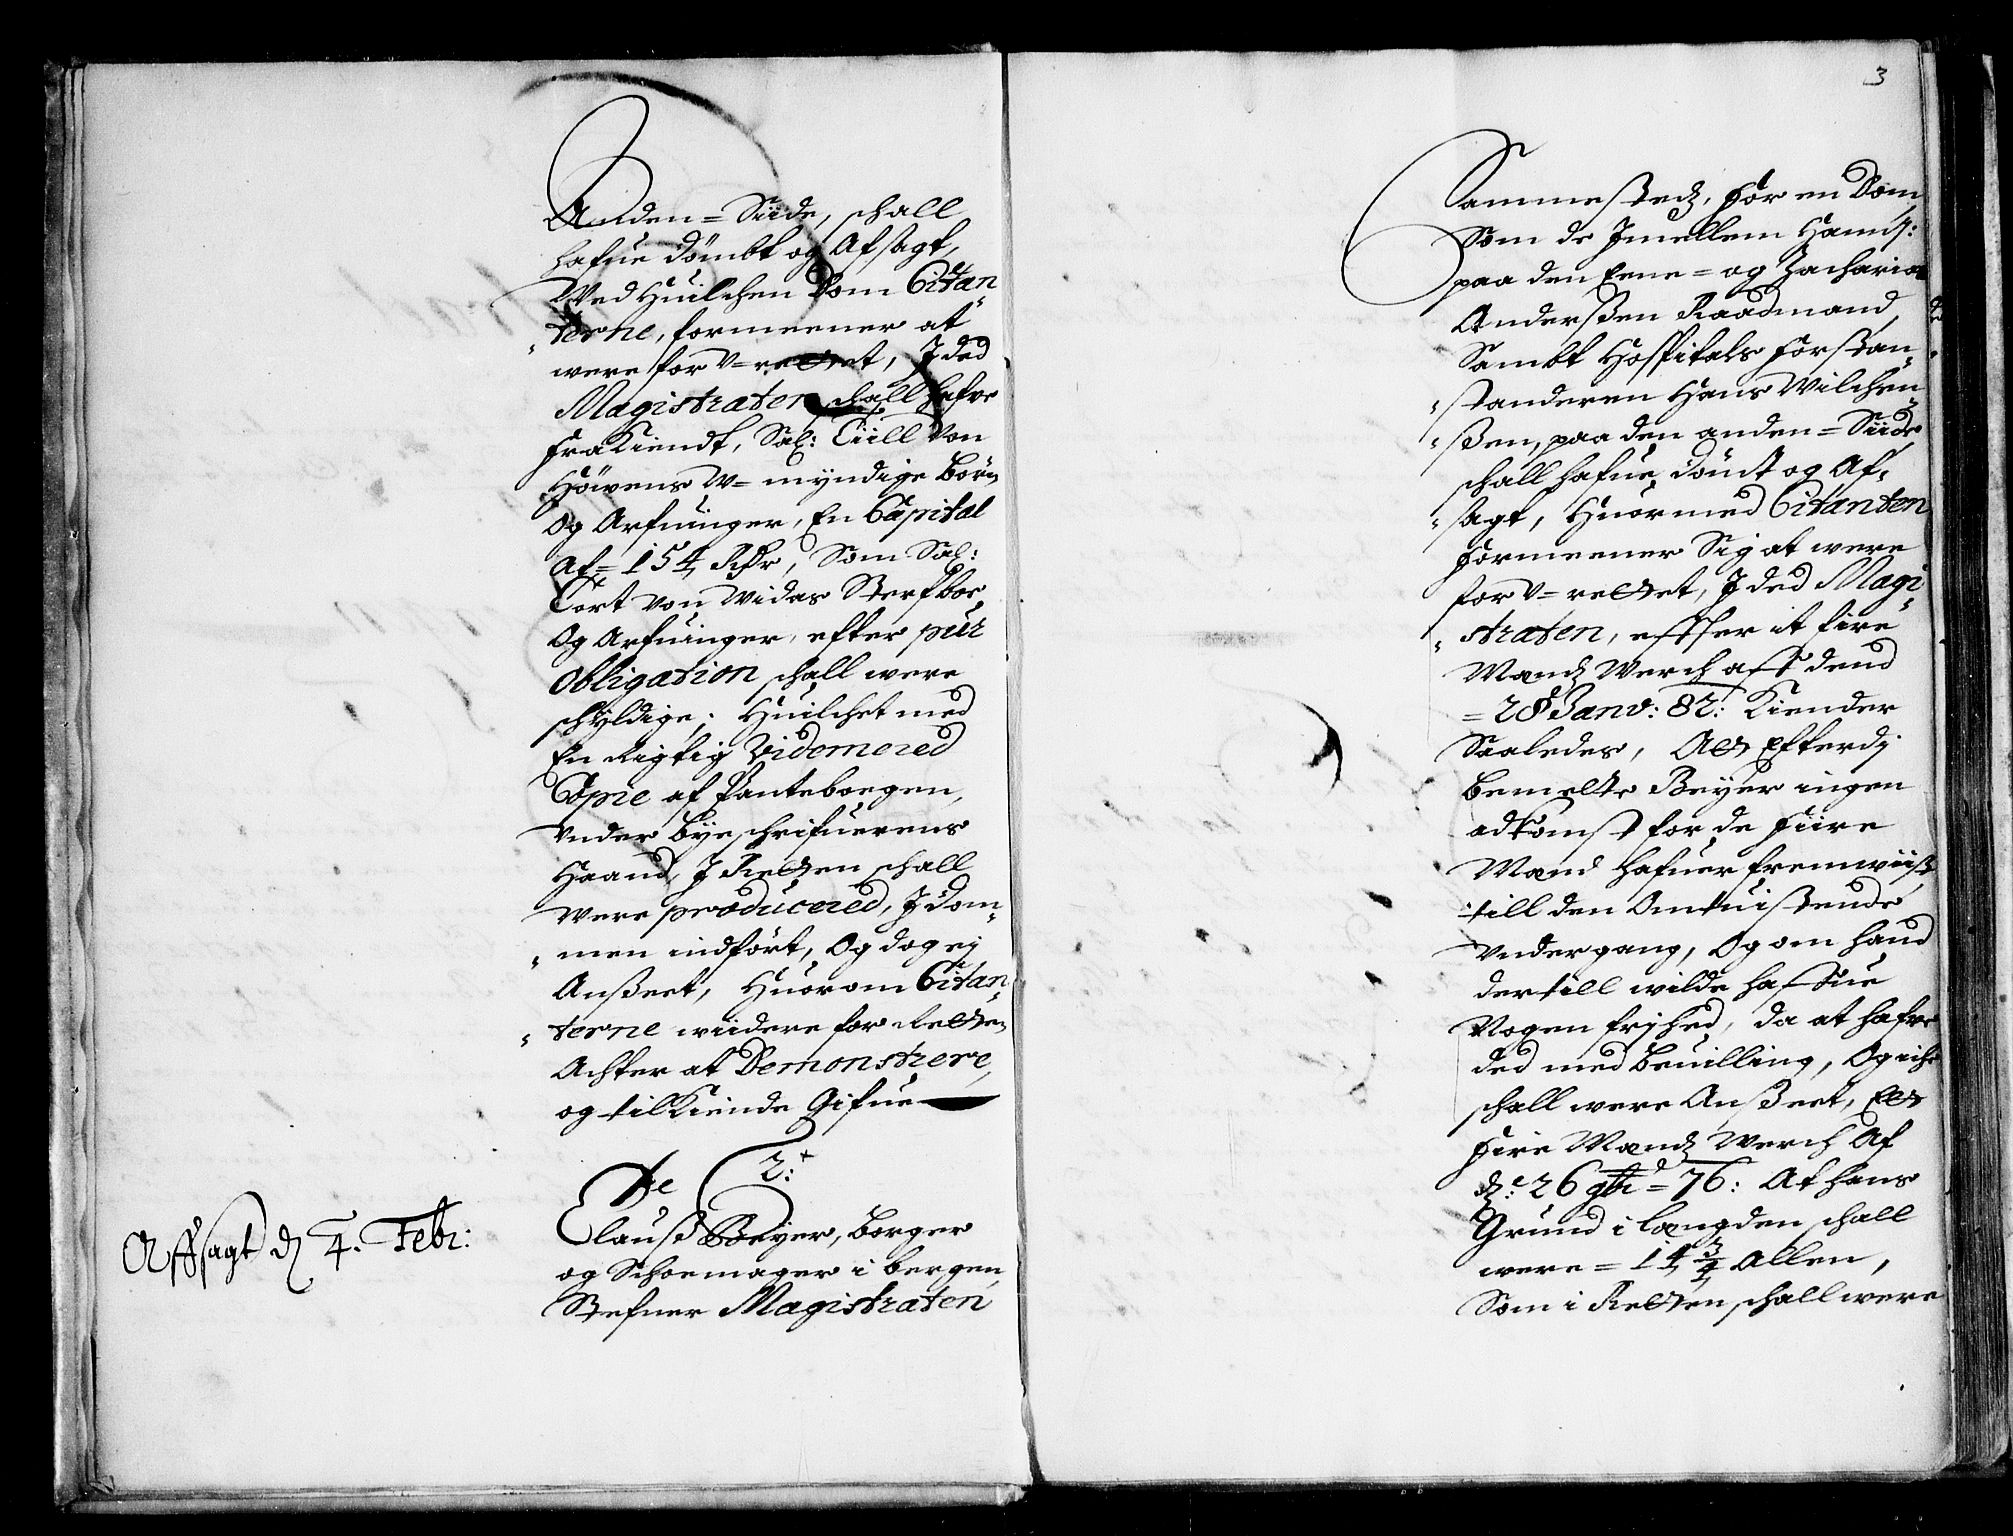 Anden = Siide, schall
hafue dömbt og Afsagt,
Wed Huilchen Dom Citan„
„terne, formeener at
were for V=rettet, J ded
Magistraten schall hafve
fra Kiendt, Sal: Tiill Von
Höwens W=myndige börn
Og Arfuinger, En Capital
Af = 154 Rdr, Som Sal:
Cort von Widas Sterfboe
Og Arfuinger, efter pur
Obligation schall were
schyldige; Huilchet med
En Rigtig Videmered
Copie af Panteboegen,
Vnder byeschrifuerens
Haand, J Retten schall
Were producered, J dom„
„men indfört, Og dog ej
Anßeet, Huorom Citan„
„terne wiidere for Retten
Achter at Demonstrere,
og tilKiende Gifue
2:
Clauß Beyer, borger
og Schoemager i bergen,
Stefner Magistraten
Affsagt d 4. Febr:
3
Sammested, for en Dom,
Som de Jmellem Hannß:
paa den Eene = og Zacharias
Anderßen Raadmand,
Sambt Hospitals forstan„
„standeren Hans Wilchen„
„ßen, paa den anden = Siide
schall hafue dömt og Af„
„sagt, Huormed Citanten
formeener Sig at were
for V=rettet, J ded Magi„
„straten, effter it fire
Mands Werch aff dend
= 28 Janv: 82: Kiender
Saaledes, Att Efterdj
bemelte Beyer ingen
adkomst for de fiire
Mand hafuer fremwiist
till den Omtuistende
Vndergang, Og om hand
dertill wilde haffue
Nogen frjhed, da at hafve
ded med beuilling, Og iche
schall were Anßeet, Ett
fire Mands Werch Af
d: 26 = 76: At hans
Grund i længden schall
were = 14 3/4 Allen,
Som i Retten schall were